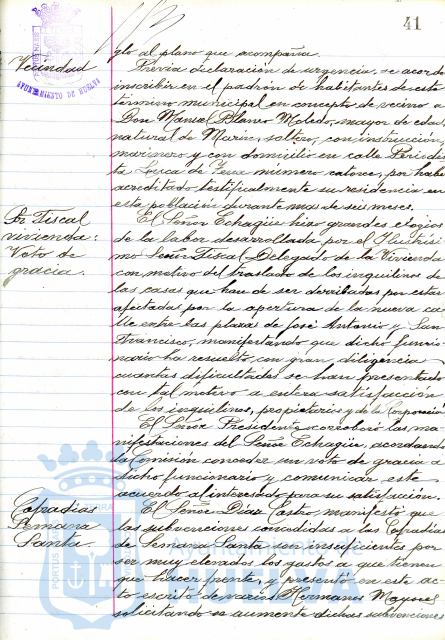 41
glo al plano que acompaña.
Vecindad
Previa declaración de urgencia, se acordó
inscribir en el padrón de habitantes de este
término municipal en concepto de vecino a
Don Manuel Blanco Moledo, mayor de edad
natural de Marin, soltero, con instrucción,
marinero y con domicilio en calle Periodis
ta Luca de Tena número catorce, por haber
acreditado testificalmente su residencia en
esta población durante mas de seis meses.
Sr. Fiscal
vivienda:
Voto de
gracia.
El Señor Echagüe hizo grandes elogios
de la labor desarrollada por el Ilustrísi
mo Señor Fiscal Delegado de la Vivienda
con motivo del traslado de los inquilinos de
las casas que han de ser derribadas por estar
afectadas por la apertura de la nueva ca
lle entre las plazas de José Antonio y San
Francisco, manifestando que dicho funcio
nario ha resuelto con gran diligencia
cuantas dificultades se han presentado
con tal motivo a entera satisfacción
de los inquilinos, propietarios y de la Corporación
El Señor Presidente corroboró las ma
nifestaciones del Señor Echagüe, acordando
la Comisión conceder un voto de gracia a
dicho funcionario y comunicar este
acuerdo al interesado para su satisfacción.
Cofradías
Semana
Santa.
El Señor Díaz Castro manifestó que
las subvenciones concedidas a las Cofradías
de Semana Santa son insuficientes por
ser muy elevados los gastos a que tienen
que hacer frente, y presentó en este ac
to escrito de varios Hermanos Mayores
solicitando se aumente dichas subvenciones
AYUNTAMIENTO DE HUELVA
Ayuntamiento de
HUELVA